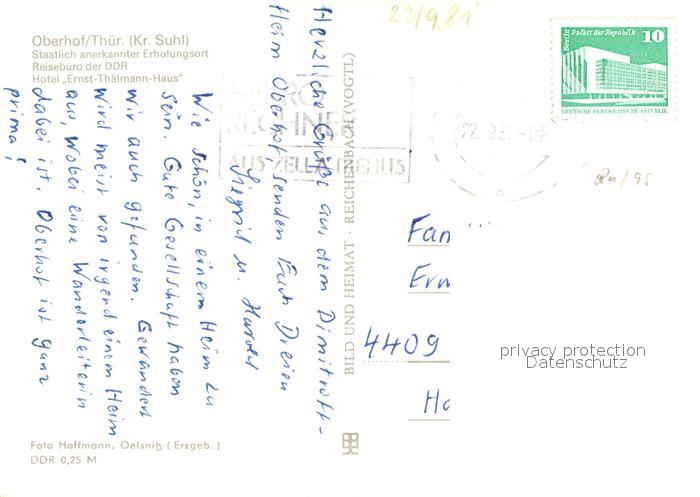 Oberhof/Thür. (Kr. Suhl)
Staatlich anerkannter Erholungsort
Reisebüro der DDR
Hotel „Ernst-Thälmann-Haus"
Herzliche Grüße aus dem Dimitroff-
Heim Oberhof senden Euch Dreien
Siegrid u. Harald
Wie schön, in einem Heim zu
sein. Gute Gesellschaft haben
wir auch gefunden. Gewandert
wird meist von irgend einem Heim
aus, wobei eine Wanderleiterin
dabei ist. Oberhof ist ganz
prima!
Foto Hoffmann, Oelsnitz (Erzgeb.)
DDR 0,25 M
BILD UND HEIMAT · REICHENBACH (VOGTL)
23/9.81
RECHNER
AUS ZELLA-MEHLIS
22.9.81-14
Berlin Palast der Republik
10
DEUTSCHE DEMOKRATISCHE REPUBLIK
Fam
Erw
4409
Ho
privacy protection
Datenschutz